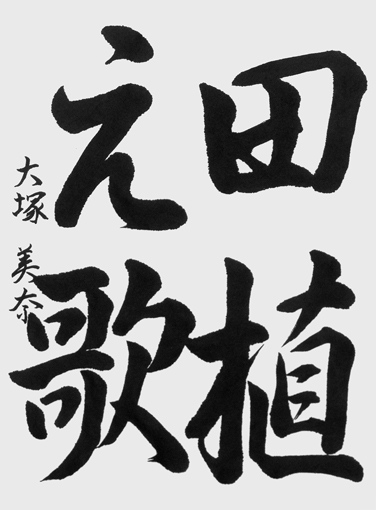 田植
え歌
大塚 美奈